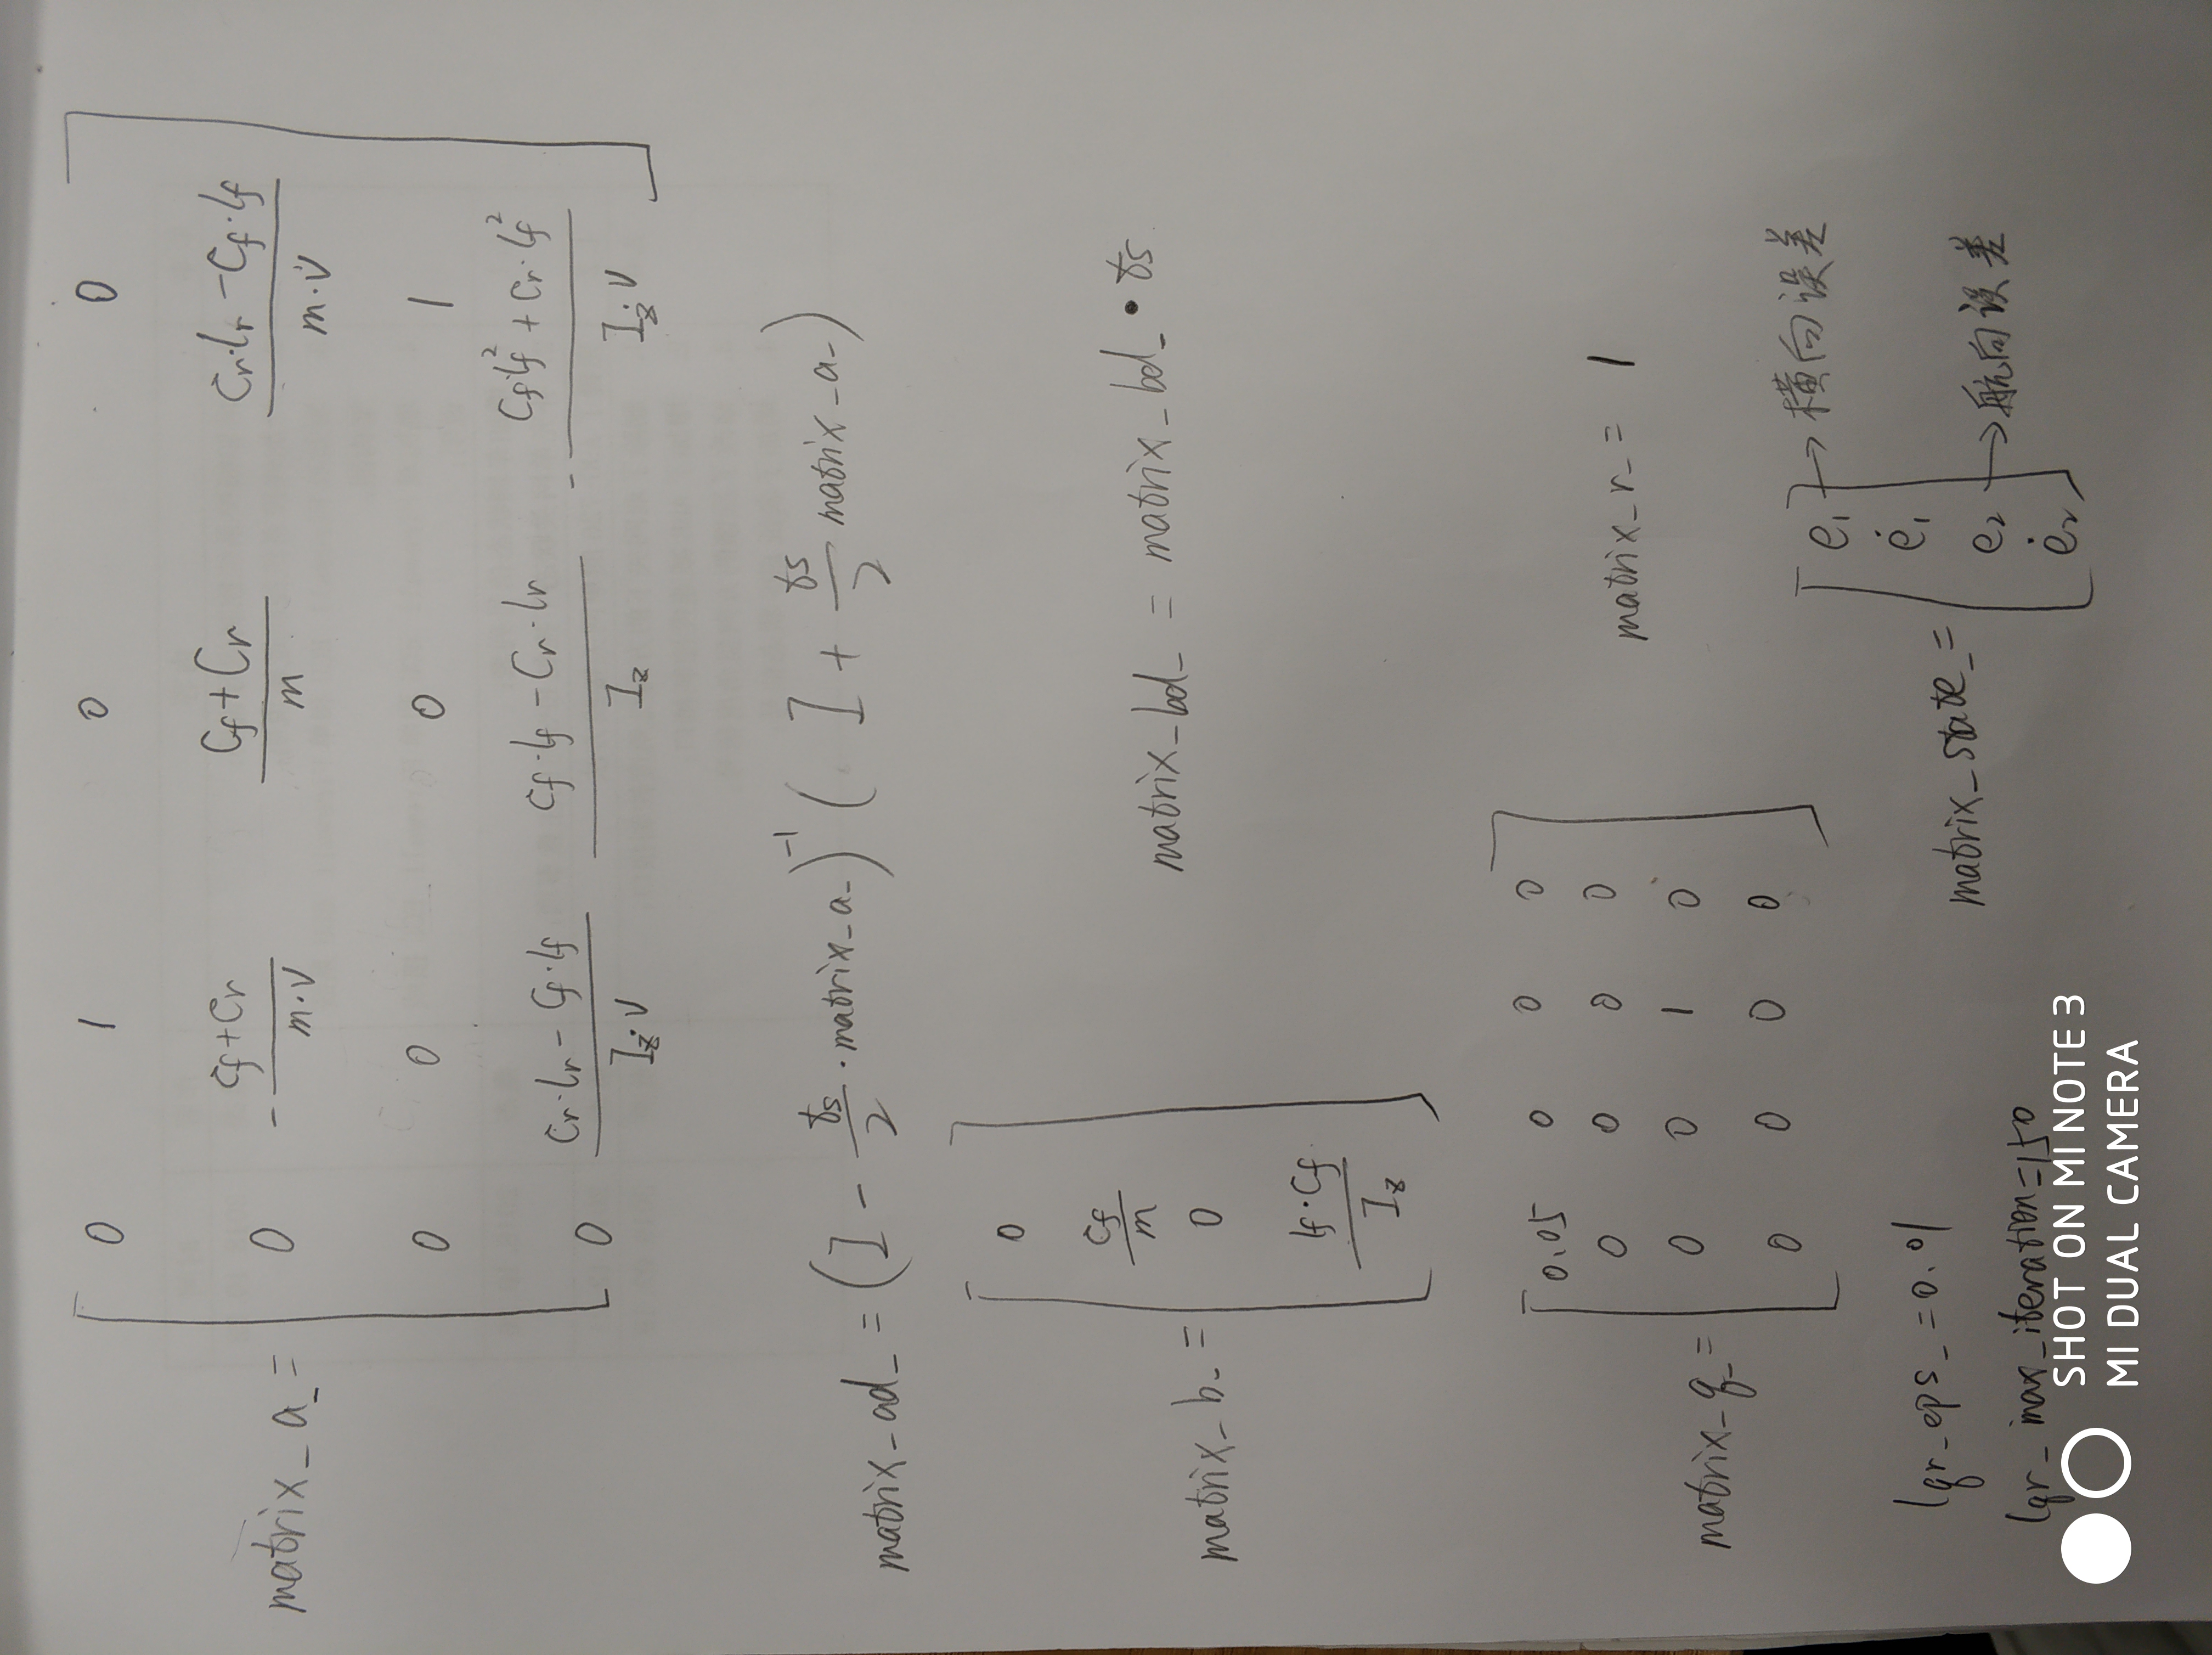 matrix_a_ = [ 0 1 0 0
0 -(Cf+Cr)/(m·V) (Cf+Cr)/m (Cr·lr-Cf·lf)/(m·V)
0 0 0 1
0 (Cr·lr-Cf·lf)/(Iz·V) (Cf·lf-Cr·lr)/Iz -(Cf·lf²+Cr·lf²)/(Iz·V) ]
matrix_ad_ = (I - ts/2 · matrix_a_)⁻¹ ( I + ts/2 matrix_a_)
matrix_b_ = [ 0
Cf/m
0
lf·Cf/Iz ]
matrix_bd_ = matrix_bd_ • ts
matrix_q_ = [ 0.05 0 0 0
0 0 0 0
0 0 1 0
0 0 0 0 ]
matrix_r_ = 1
lqr_eps_=0.01
lqr_max_iteration=150
matrix_state_ = [ e₁ → 横向误差
ė₁
e₂ → 航向误差
ė₂ ]
SHOT ON MI NOTE 3
MI DUAL CAMERA